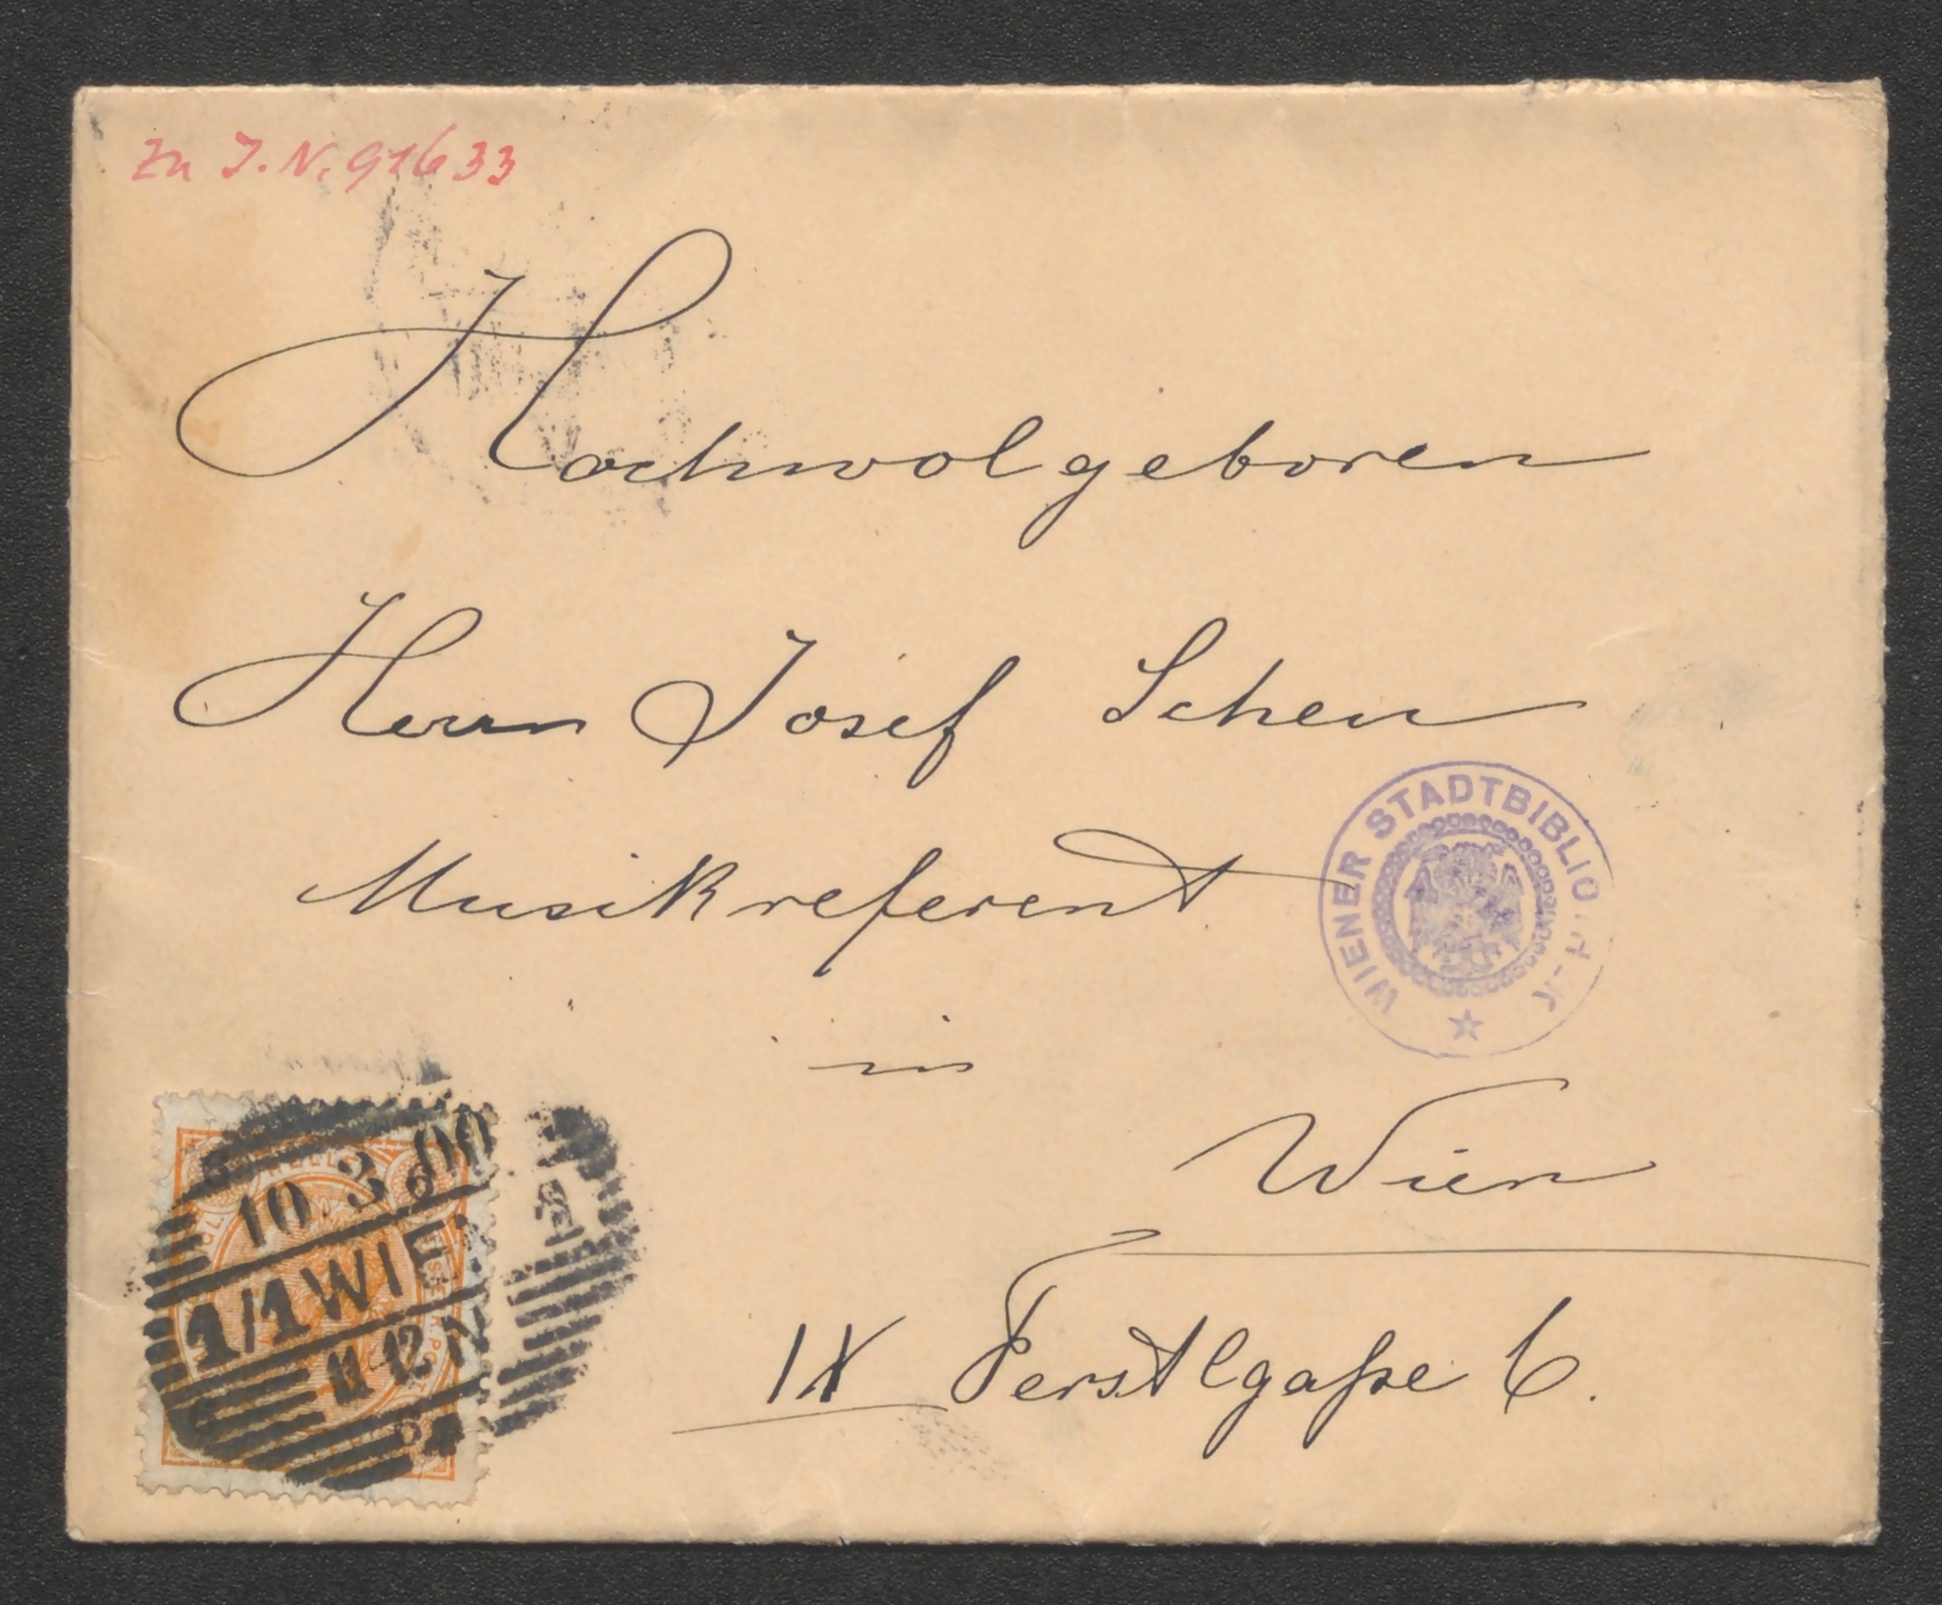 Zu I.N. 91633
Hochwolgeboren
Herrn Josef Scheu
Musikreferent
in
Wien
IX Ferstlgaße 6.
WIENER STADTBIBLIOTHEK
10. 3. 00
1/1 WIEN
11-12 N
1